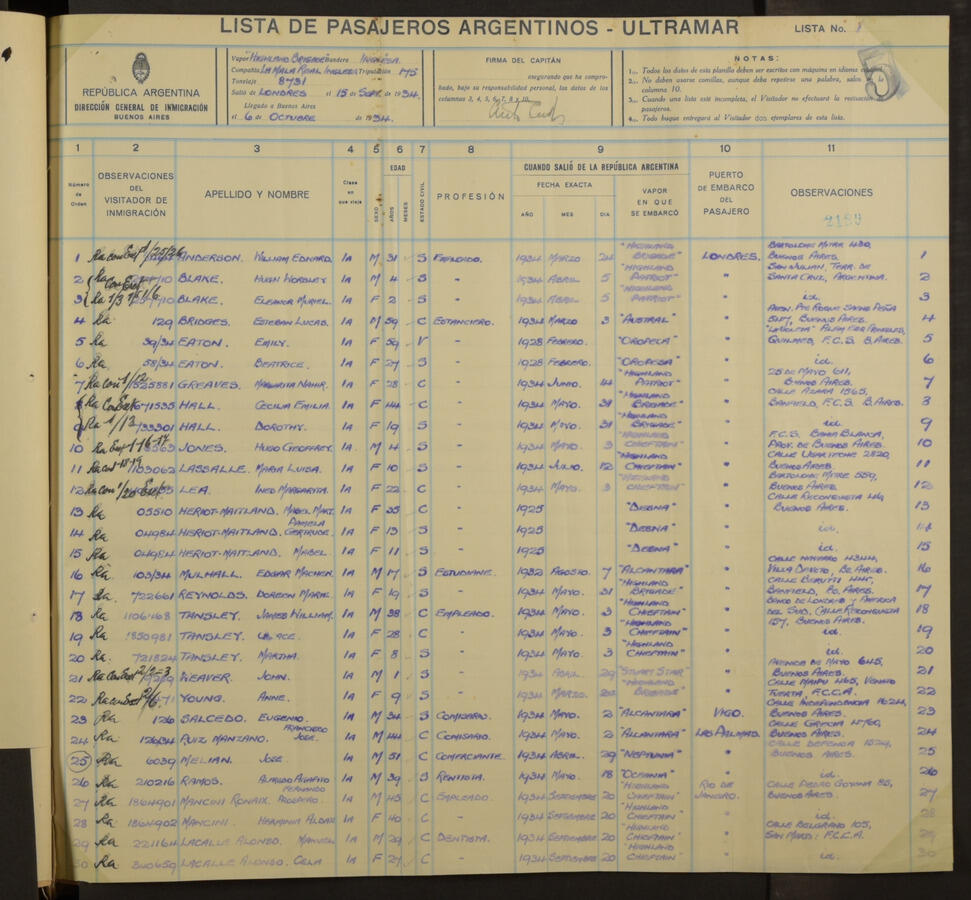 LISTA DE PASAJEROS ARGENTINOS - ULTRAMAR
LISTA No.
5
REPÚBLICA ARGENTINA
DIRECCIÓN GENERAL DE INMIGRACIÓN
BUENOS AIRES
Vapor "HIGHLAND BRIGADE" Bandera INGLESA.
Compañía LA MALA REAL INGLESA Tripulación 175
Tonelaje 8731
Salió de LONDRES el 15 de SEPT. de 1934.
Llegado a Buenos Aires
el 6 de OCTUBRE de 1934.
FIRMA DEL CAPITÁN
asegurando que ha comprobado, bajo su responsabilidad personal, los datos de las
columnas 3, 4, 5, 6, 7, 8 x 10.
NOTAS:
1... Todos los datos de esta planilla deben ser escritos con máquina en idioma
2... No deben usarse comillas, aunque deba repetirse una palabra, salvo
columna 10.
3... Cuando una lista esté incompleta, el Visitador no efectuará la
pasajeros.
4... Todo buque entregará al Visitador dos ejemplares de esta lista.
1 2 3 4 5 6 7 8 9 10 11
Número de Orden
OBSERVACIONES DEL VISITADOR DE INMIGRACIÓN
APELLIDO Y NOMBRE
Clase en que viaja
SEXO
EDAD
AÑOS
MESES
ESTADO CIVIL
PROFESIÓN
CUANDO SALIÓ DE LA REPÚBLICA ARGENTINA
FECHA EXACTA
AÑO MES DIA
VAPOR EN QUE SE EMBARCÓ
PUERTO DE EMBARCO DEL PASAJERO
OBSERVACIONES
1 ANDERSON. WILLIAM EDWARD. 1A M 31 S EMPLEADO. 1934 MARZO 24 "HIGHLAND BRIGADE" LONDRES. BARTOLOME MITRE 430, BUENOS AIRES. 1
2 BLAKE. HUGH WORSLEY 1A M 4 S - 1934 ABRIL 5 "HIGHLAND PATRIOT" " SAN JULIAN, TERR. DE SANTA CRUZ, ARGENTINA. 2
3 BLAKE. ELEANOR MURIEL. 1A F 2 S - 1934 ABRIL 5 "HIGHLAND PATRIOT" " id. 3
4 Ra 129 BRIDGES. ESTEBAN LUCAS. 1A M 59 C ESTANCIERO. 1934 MARZO 3 "AUSTRAL" " AVEN. PTE ROQUE SAENZ PEÑA 547, BUENOS AIRES. 4
5 Ra 39/34 EATON. EMILY. 1A F 59 V - 1928 FEBRERO. "OROPESA" " QUILMES, F.C.S. B. AIRES. 5
6 Ra. 58/34 EATON. BEATRICE. 1A F 27 S - 1928 FEBRERO. "OROPESA" " id. 6
7 525881 GREAVES. MARGARITA NAHIR. 1A F 28 C - 1934 JUNIO. 14 "HIGHLAND PATRIOT" " 25 DE MAYO 611, BUENOS AIRES. 7
8 671535 HALL. CECILIA EMILIA. 1A F 44 C - 1934 MAYO. 31 "HIGHLAND BRIGADE" " CALLE AZARA 1565, BANFIELD, F.C.S. B. AIRES. 8
9 733301 HALL. DOROTHY. 1A F 19 S - 1934 MAYO. 31 "HIGHLAND BRIGADE" " id 9
10 JONES. HUGO GEOFFREY. 1A M 4 S - 1934 MAYO. 3 "HIGHLAND CHIEFTAIN" " F.C.S. BAHIA BLANCA, PROV. DE BUENOS AIRES. 10
11 103062 LASSALLE. MARIA LUISA. 1A F 10 S - 1934 JULIO. 12 "HIGHLAND CHIEFTAIN" " CALLE UGARTECHE 2820, BUENOS AIRES. 11
12 LEA. INES MARGARITA. 1A F 22 C - 1934 MAYO. 3 "HIGHLAND CHIEFTAIN" " BARTOLOME MITRE 559, BUENOS AIRES. 12
13 Ra 05510 HERIOT-MAITLAND. MABEL MARY. 1A F 35 C - 1925 "DESNA" " BUENOS AIRES. 13
14 Ra. 04984 HERIOT-MAITLAND. PAMELA GERTRUDE. 1A F 13 S - 1925 "DESNA" " id. 14
15 Ra. 04984 HERIOT-MAITLAND. MABEL 1A F 11 S - 1925 "DESNA" " id. 15
16 Ra. 103/34 MULHALL. EDGAR MACHEN. 1A M 17 S ESTUDIANE. 1932 AGOSTO. 7 "ALCANTARA" " VILLA DEVOTO, BS. AIRES. 16
17 Ra. 722661 REYNOLDS. DOREEN MURIEL 1A F 19 S - 1934 MAYO. 31 "HIGHLAND BRIGADE" " CALLE BERUTTI 445, BANFIELD, BS. AIRES. 17
18 Ra. 1106468 TANSLEY. JAMES WILLIAM. 1A M 38 C EMPLEADO. 1934 MAYO. 3 "HIGHLAND CHIEFTAIN" " BANCO DE LONDRES Y AMERICA DEL SUD, CALLE RECONQUISTA 157, BUENOS AIRES. 18
19 Ra. 1850981 TANSLEY. 1A F 28 C - 1934 MAYO. 3 "HIGHLAND CHIEFTAIN" " id. 19
20 Ra. 721824 TANSLEY. MARTHA. 1A F 8 S - 1934 MAYO. 3 "HIGHLAND CHIEFTAIN" " id. 20
21 WEAVER. JOHN. 1A M 1 S - 1934 ABRIL. 29 "STUART STAR" " AVENIDA DE MAYO 645, BUENOS AIRES. 21
22 YOUNG. ANNE. 1A F 9 S - 1934 MARZO. "HIGHLAND BRIGADE" " CALLE MAIPU 465, VENADO TUERTO, F.C.C.A. 22
23 Ra 126 SALCEDO. EUGENIO. 1A M 34 S COMISARIO. 1934 MAYO. 2 "ALCANTARA" VIGO. CALLE INDEPENDENCIA 1624, BUENOS AIRES. 23
24 Ra 12634 RUIZ MANZANO. FRANCISCO JOSE. 1A M 44 C COMISARIO. 1934 MAYO. 2 "ALCANTARA" LAS PALMAS. BUENOS AIRES. 24
25 Ra 6039 MELIAN. JOSE. 1A M 51 C COMERCIANTE. 1934 ABRIL. 29 "NEPTUNIA" " CALLE DEFENSA 1524, BUENOS AIRES. 25
26 Ra 210216 RAMOS. 1A M 39 S RENTISTA. 1934 MAYO. 18 "OCEANIA" " id. 26
27 Ra 1864901 MANCINI RONAIX. FERNANDO 1A M 45 C EMPLEADO. 1934 SEPTIEMBRE 20 "HIGHLAND CHIEFTAIN" RIO DE JANEIRO. CALLE PEDRO GOYENA 85, BUENOS AIRES. 27
28 Ra. 1864902 MANCINI. HERMINIA 1A F 40 C - 1934 SEPTIEMBRE 20 "HIGHLAND CHIEFTAIN" " id. 28
29 Ra 221164 LACALLE ALONSO. MANUEL 1A M 29 C DENTISTA. 1934 SEPTIEMBRE 20 "HIGHLAND CHIEFTAIN" " CALLE BELGRANO 105, SAN MARTIN F.C.C.A. 29
30 Ra 340659 LACALLE ALONSO. CELIA 1A F 27 C - 1934 SEPTIEMBRE 20 "HIGHLAND CHIEFTAIN" " id. 30